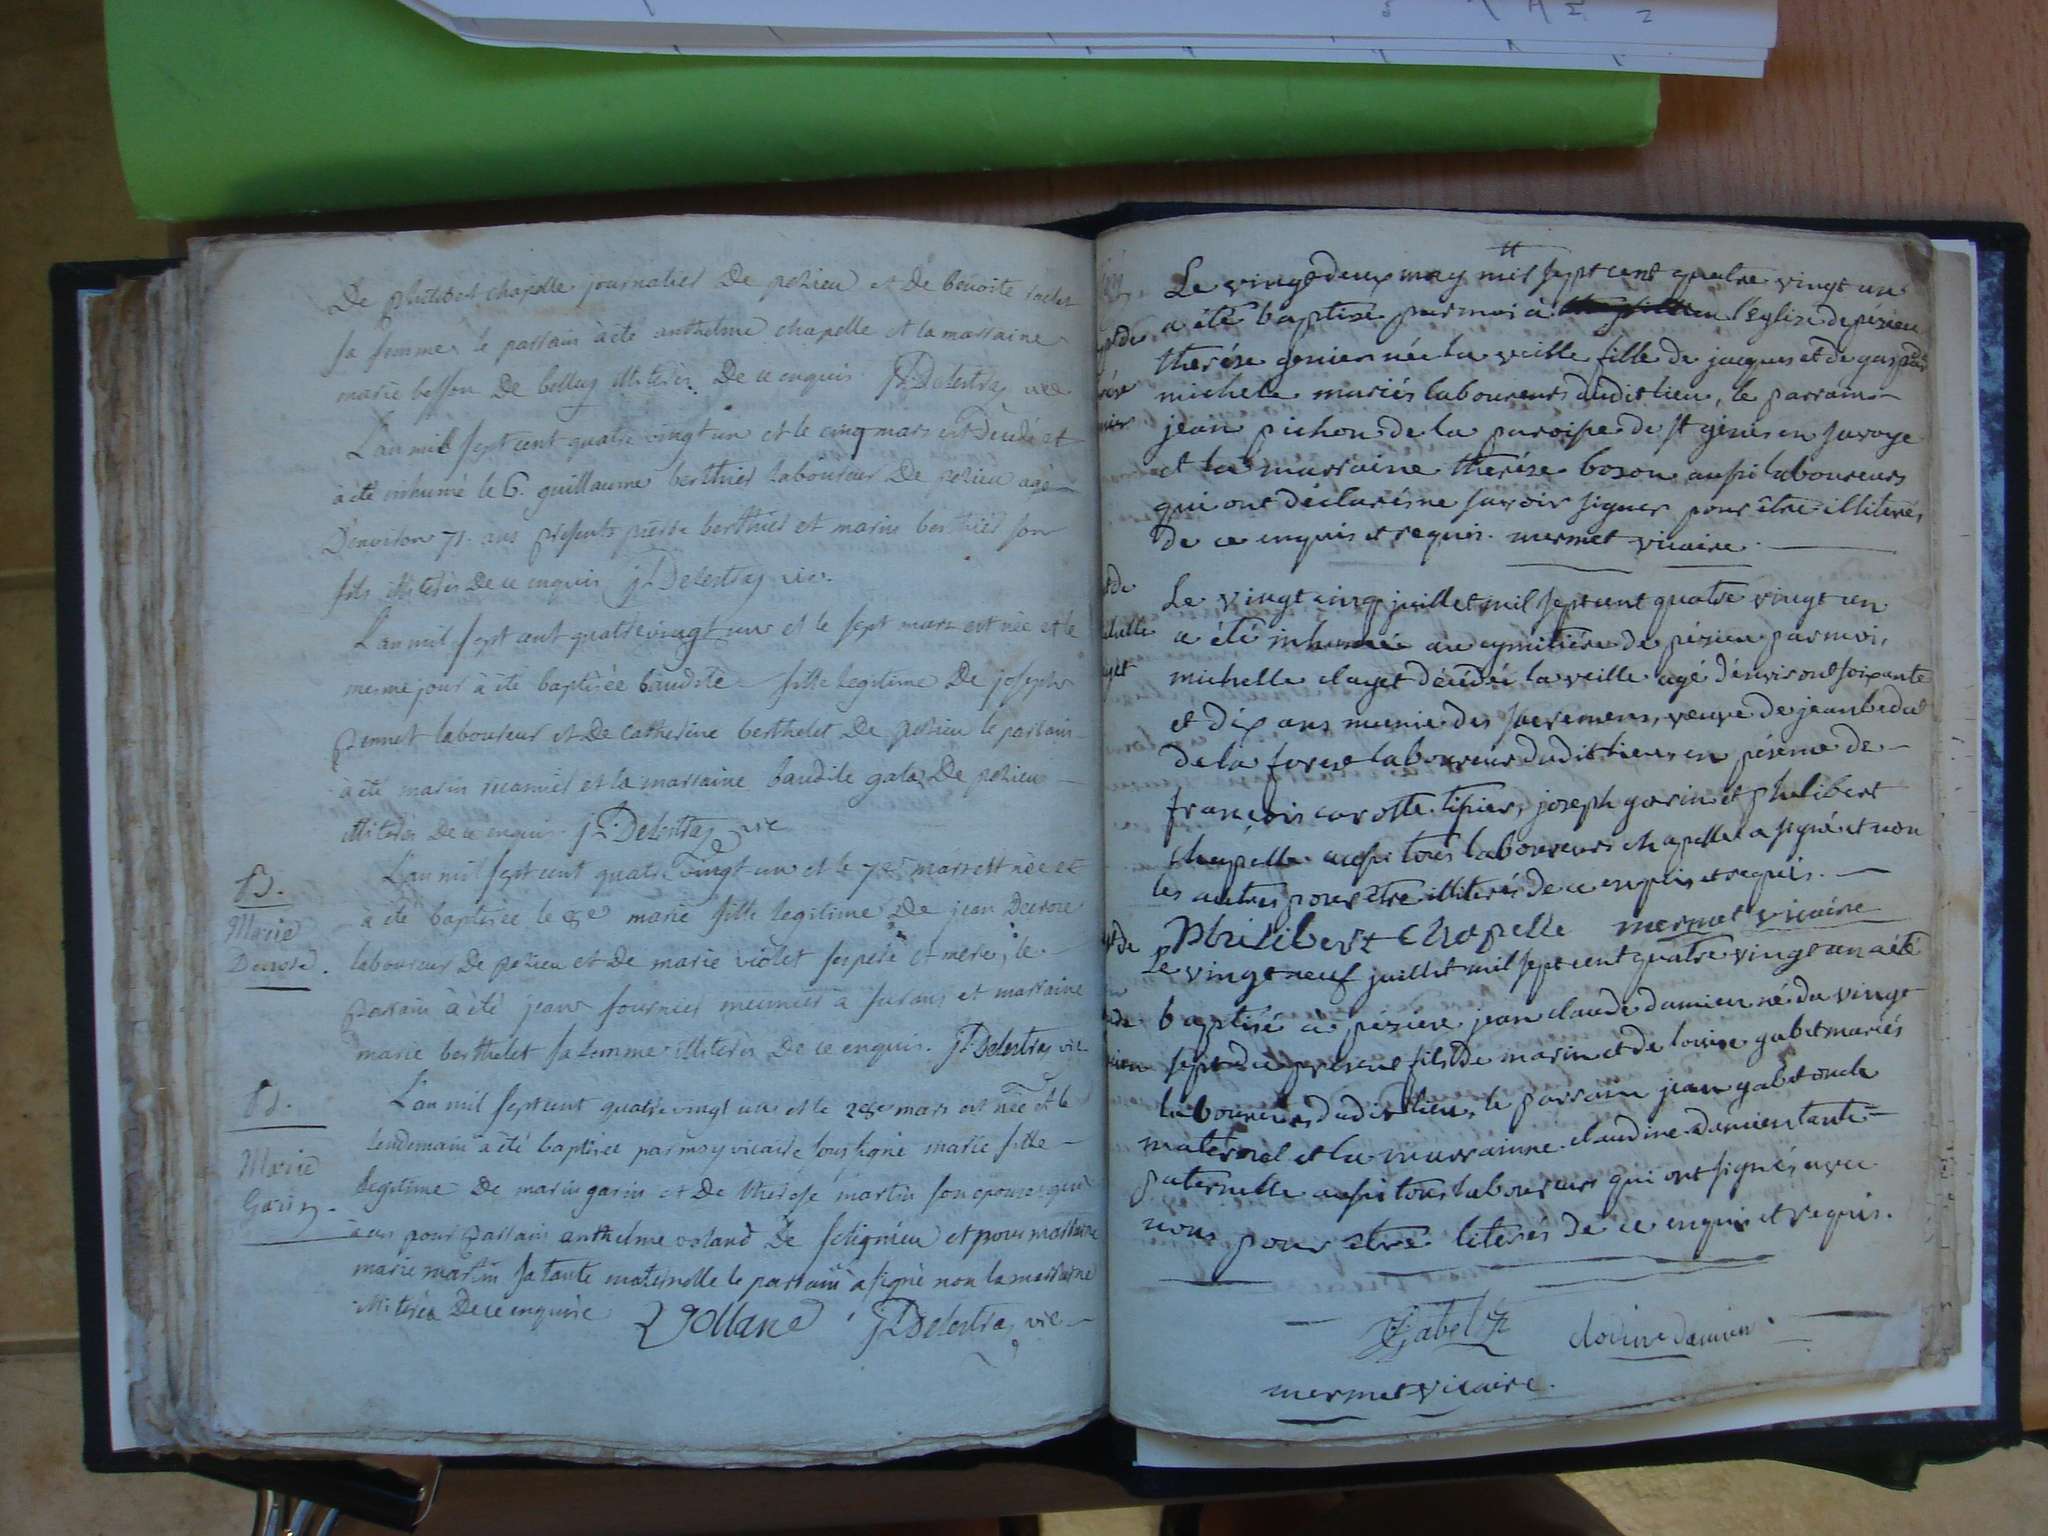 De philibert chapelle journalier De pezieu et de benoite
sa femme le parrain à été anthelme chapelle et la marraine
marie besson De belley illiteres De ce enquis JL Delestraz vic
L'an mil sept cent quatre vingt un et le cinq mars est décédé et
à été inhumé le 6. guillaume berthier laboureur De pezieu agé
D'environ 71. ans présents pierre berthier et marin berthier son
fils illiteres De ce enquis JL Delestraz vic.
L'an mil sept cent quatre vingt un et le sept mars est née et le
mesme jour à été baptisée baudite fille legitime De joseph
pennet laboureur et De catherine berthelet De pezieu le parrain
à été marin recamier et la marraine baudite galay De pezieu
illiteres De ce enquis JL Delestraz vic
B.
Marie
Decroze.
L'an mil sept cent quatre vingt un et le 7e mars est née et
à été baptisée le 8e marie fille legitime De jean Decroze
laboureur De pezieu et De marie violet ses pere et mere, le
parrain à été jean fournier meunier a surans et marraine
marie berthelet sa femme illiteres De ce enquis. JL Delestraz vic
B.
Marie
Garin.
L'an mil sept cent quatre vingt un et le 28e mars est née et le
lendemain à été baptisée par moy vicaire soussigné marie fille
legitime De marin garin et De therese martin son epouse qui
à eus pour parrain anthelme voland De selignieu et pour marraine
marie martin sa tante maternelle le parrain à signé non la marraine
illiterée De ce enquise Volland JL Delestraz vic
Le vingt deux may mil sept cent quatre vingt un
a été baptisé par moi à l'Eglise de pezieu
therése genier née la veille fille de jacques et de gasparde
michele mariés laboureurs dudit lieu, le parrain
jean pichon de la paroisse de st genis en savoye
et la marraine therése bozon aussi laboureurs
qui ont déclarés ne savoir signer pour être illiterés
de ce enquis et requis. mermet vicaire.
Le vingt cinq juillet mil sept cent quatre vingt un
a été inhumée au cymitiére de pézieu par moi,
michelle claget décédée la veille agé d'environt soixante
et dix ans munie des sacremens, veuve de jean bedat
de la forest laboureur dudit lieu en présence de
francois carotte tissier, joseph garin et philibert
chapelle aussi tous laboureurs chapelle a signé et non
les autres pour être illiterés de ce enquis et requis.
Philibert Chapelle mermet vicaire
Le vingt neuf juillet mil sept cent quatre vingt un a été
baptisé à pézieu jean claude damien né du vingt
sept du présent fils de marin et de louise gabet mariés
laboureurs dudit lieu, le parrain jean gabet oncle
maternel et la marrainne claudine damien tante
paternelle aussi tous laboureurs qui ont signés avec
nous pour être literés de ce enquis et requis.
Gabet clodine damien
mermet vicaire.